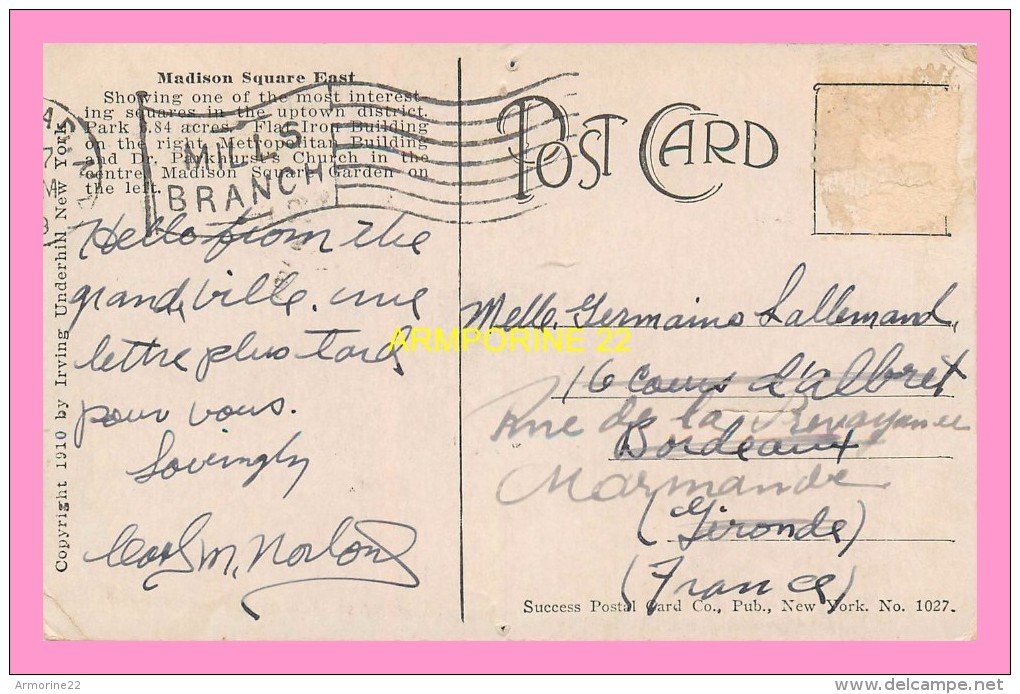 Madison Square East
Showing one of the most interest-
ing squares in the uptown district.
Park 6.84 acres. Flat Iron Building
on the right, Metropolitan Building
and Dr. Parkhurst's Church in the
centre, Madison Square Garden on
the left.
MILLS
BRANCH
POST CARD
Hello from the
grande ville. une
lettre plus tard
pour vous.
Lovingly
M. Norton
Melle. Germaine Lallemand,
16 cours d'albret
Rue de la
Bordeaux
Marmande
(Gironde)
(France)
Copyright 1910 by Irving Underhill New York
Success Postal Card Co., Pub., New York. No. 1027.
ARMPORINE 22
Armorine22
delcampe.net